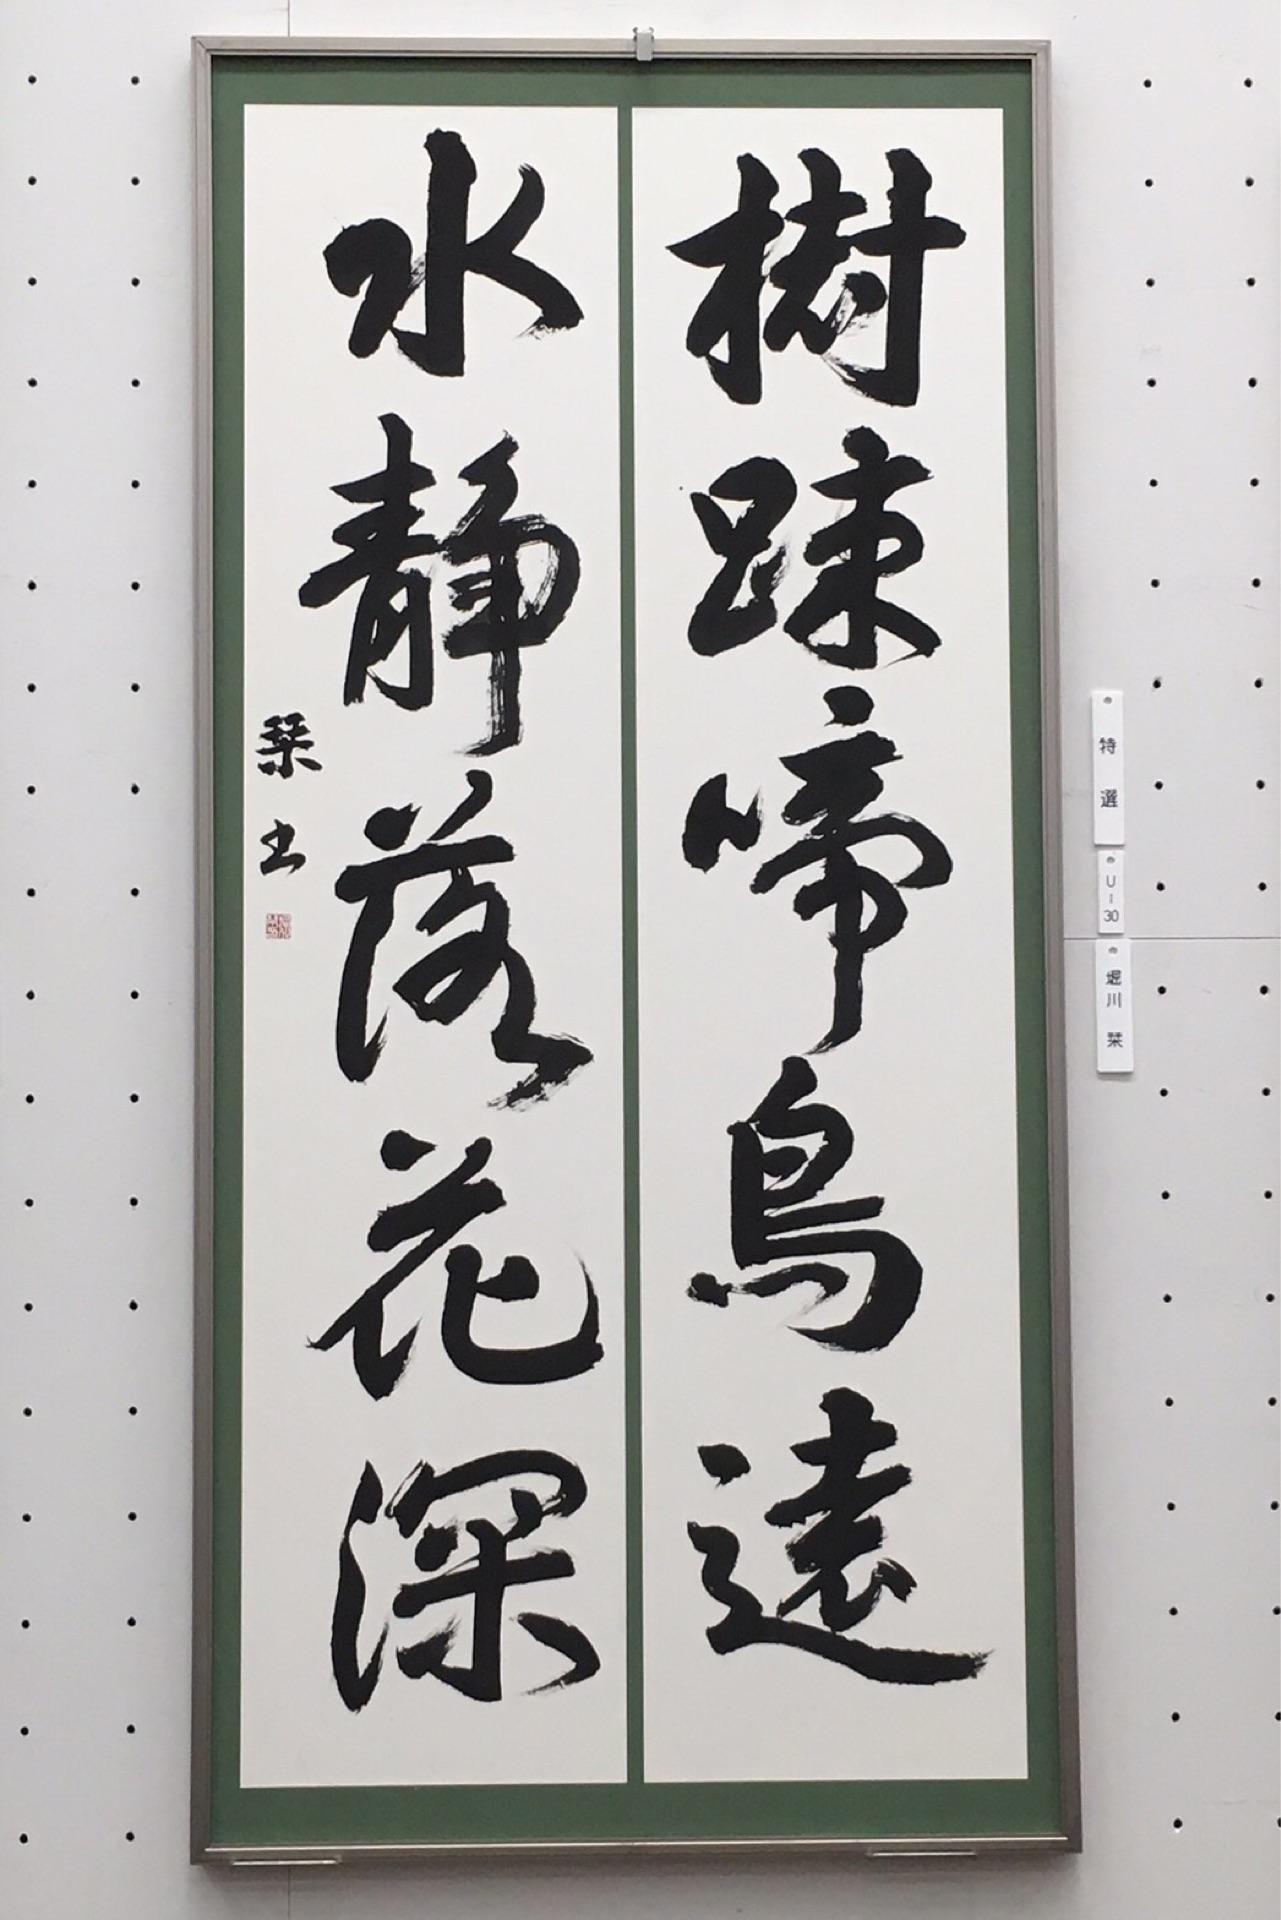 樹踈啼鳥遠
水静落花深
栞書
特選
U-30
堀川 栞